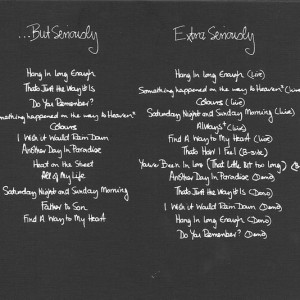 ...But Seriously
Hang In Long Enough
Thats Just the Way it Is
Do You Remember?
Something happened on the way to Heaven*
Colours
I Wish it Would Rain Down
Another Day In Paradise
Heat on the Street
All of My Life
Saturday Night and Sunday Morning
Father to Son
Find A Way to My Heart
Extra Seriously
Hang In Long Enough (Live)
Something happened on the way to Heaven* (Live)
Colours (Live)
Saturday Night and Sunday Morning (Live)
Always* (Live)
Find A Way to My Heart (Live)
Thats How I Feel (B-side)
You've Been In Long (That Little Bit too long)
Another Day In Paradise (Demo)
Thats Just the Way it Is (Demo)
I Wish it Would Rain Down (Demo)
Hang In Long Enough (Demo)
Do You Remember? (Demo)